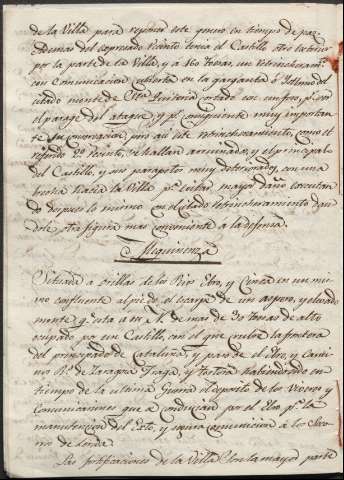 de la Villa para reponer este genero en tiempo de paz
demas del expresado recinto tenia el Castillo otro exterior
por la parte de la Villa, y a 160 toesas, un retrincheram.to
con Comunicacion cubierta en la garganta ó
citado monte de Sta Quiteria cortado con un foso p.r
el parage del ataque, y p.r consiguiente muy importan
te su conservacion, pero asi este retrincheramiento, como el
referido 2.o recinto, se hallan arruinados, y el principal
del Castillo, y sus parapetos muy deteriorados, con una
brecha hacia la Villa p.a evitar mayor daño executan
do despues lo mismo en el citado retrincheramiento dan
dole otra figura mas conveniente á la defensa.
Mequinenza
Situada a orillas de los Rios Ebro, y Cinca en un mis
mo confluente al pie del escarpe de un aspero, y elevado
monte q.e esta a su N. de mas de 30 toesas de alto
ocupado por un Castillo, con el que cubre la frontera
del principado de Cataluña, y paso de el Ebro, y Cami
no R.l de Zaragoza Fraga, y Tortosa habiendo sido en
tiempo de la ultima Guerra el deposito de los Viveres y
Municiones que se conducian por el Ebro p.a la
manutencion del Exto, y segura comunicacion a los
mo de
Las fortificaciones de la Villa son la mayor parte